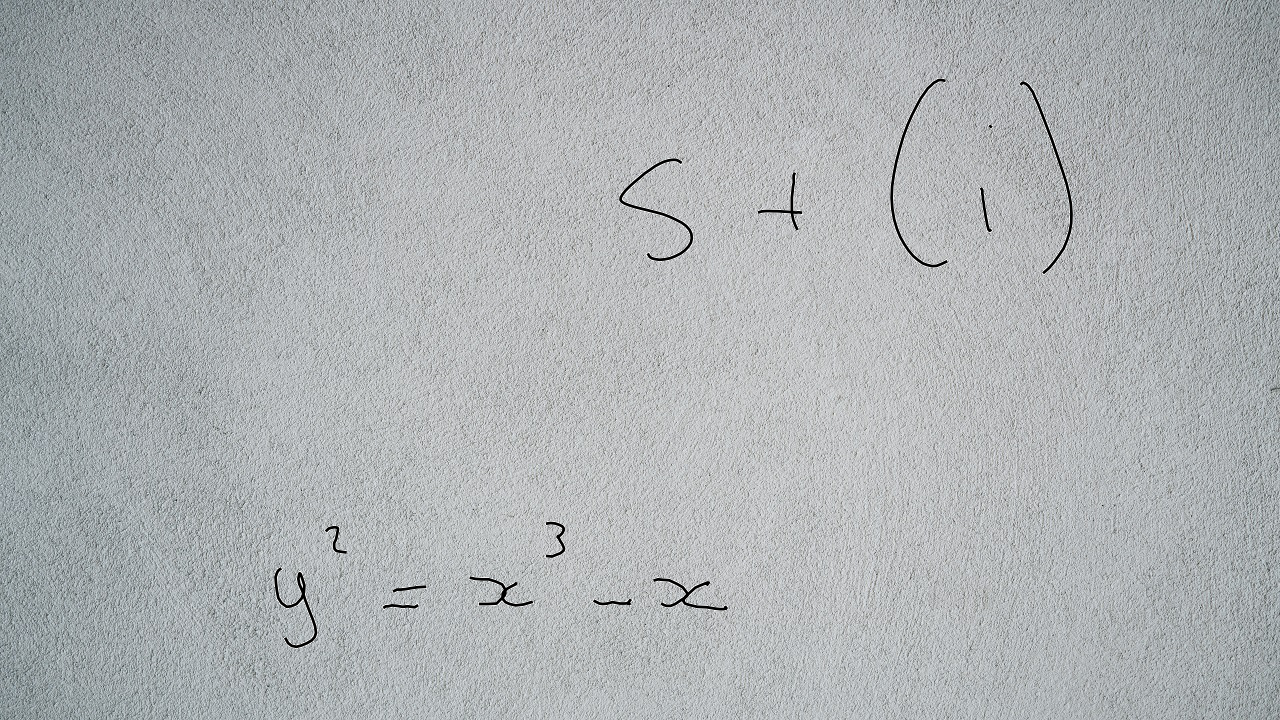 S + (i)
y² = x³ - x